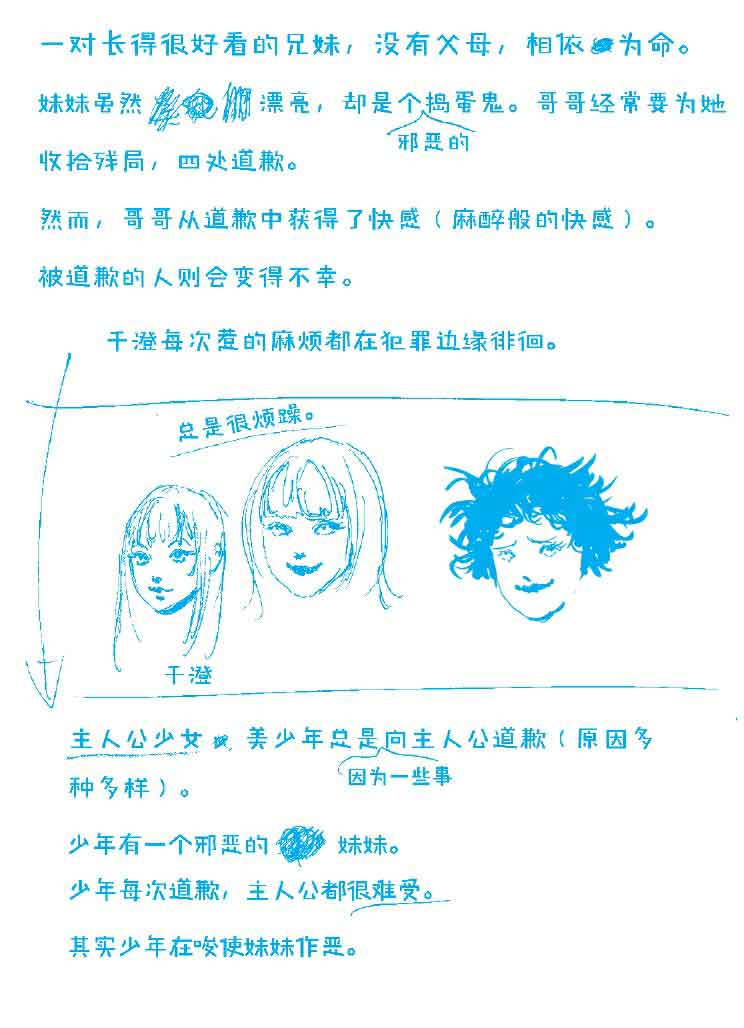 一对长得很好看的兄妹，没有父母，相依为命。
妹妹虽然漂亮，却是个捣蛋鬼。哥哥经常要为她
邪恶的
收拾残局，四处道歉。
然而，哥哥从道歉中获得了快感（麻醉般的快感）。
被道歉的人则会变得不幸。
千澄每次惹的麻烦都在犯罪边缘徘徊。
总是很烦躁。
千澄
主人公少女 美少年总是向主人公道歉（原因多
因为一些事
种多样）。
少年有一个邪恶的 妹妹。
少年每次道歉，主人公都很难受。
其实少年在唆使妹妹作恶。